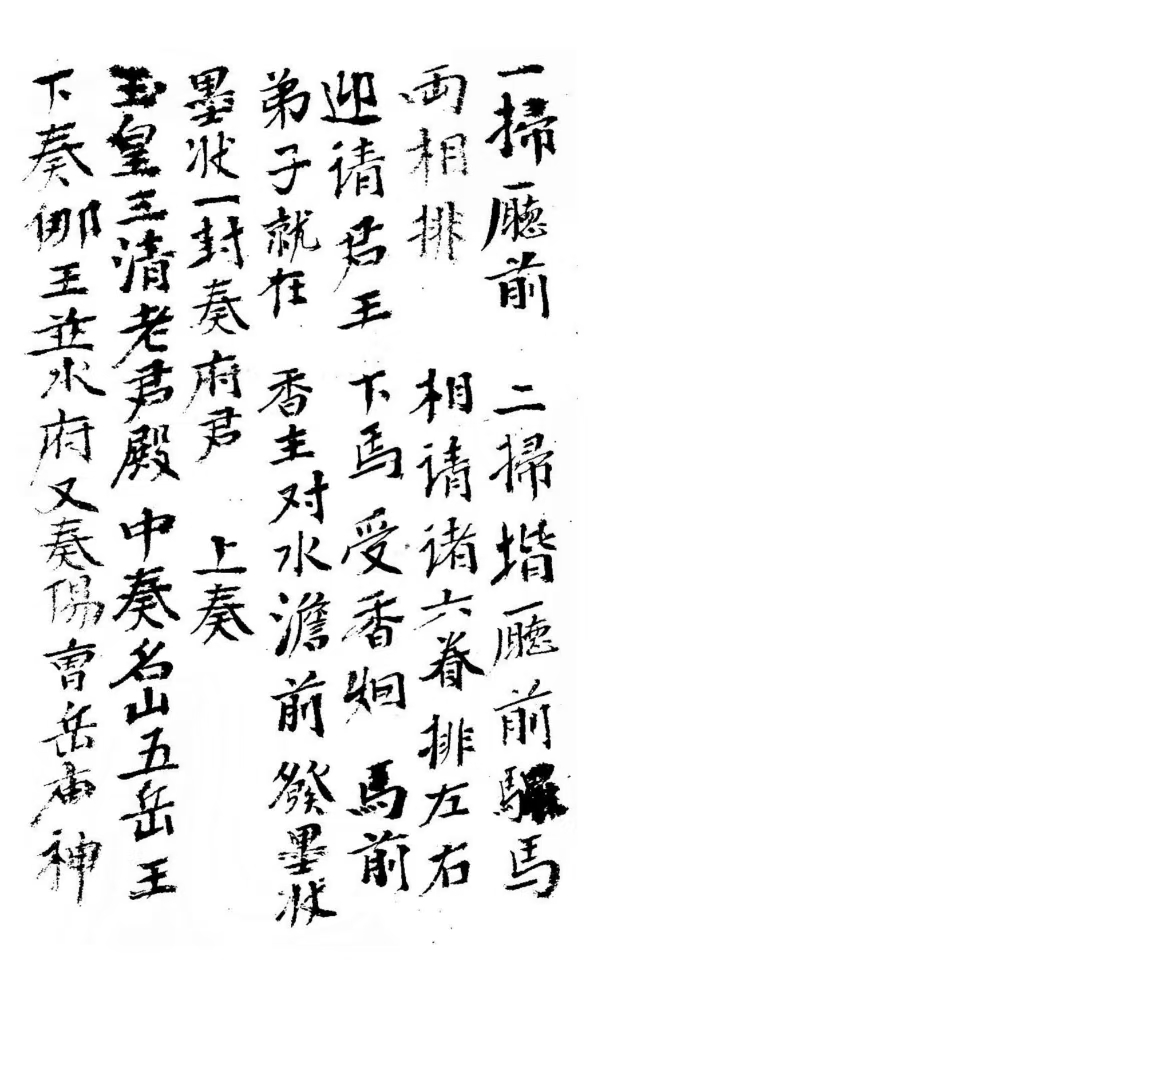 一掃廳前　二掃堦廳前驟馬
両相排　相请诸六眷排左右
迎请君王　下馬受香烟　馬前
弟子就在　香主对水澹前　發墨状
墨状一封奏府君　上奏
玉皇三清老君殿　中奏名山五岳王
下奏𨙻王並水府又奏陽曺岳庙神